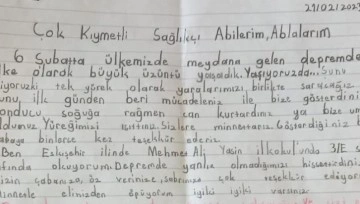 21/02/2023
Çok Kıymetli Sağlıkçı Abilerim, Ablalarım
6 Şubatta ülkemizde meydana gelen depremde
lke olarak büyük üzüntü yaşadık. Yaşıyoruzda... Şunu
iyoruzki tek yürek olarak yaralarımızı birlikte saracağız
unu, ilk günden beri mücadeleniz ile bize gösterdini
ondurucu soğuğa rağmen can kurtardınız ya bize um
ldunuz Yüreğimizi ısıttınız. Sizlere minnettarız. Gösterdiğiniz
abaya binlerce kez teşekkür ederiz.
Ben Eskişehir ilinde Mehmet Ali Yasin İlkokulunda 3/E s
ıfında okuyorum. Depremde yanlız olmadığımızı hissettirdini
izin çabanıza, öz verinize, sabrınıza çok teşekkür ediyoru
innetle elinizden öpüyorum iyiki iyiki varsınız